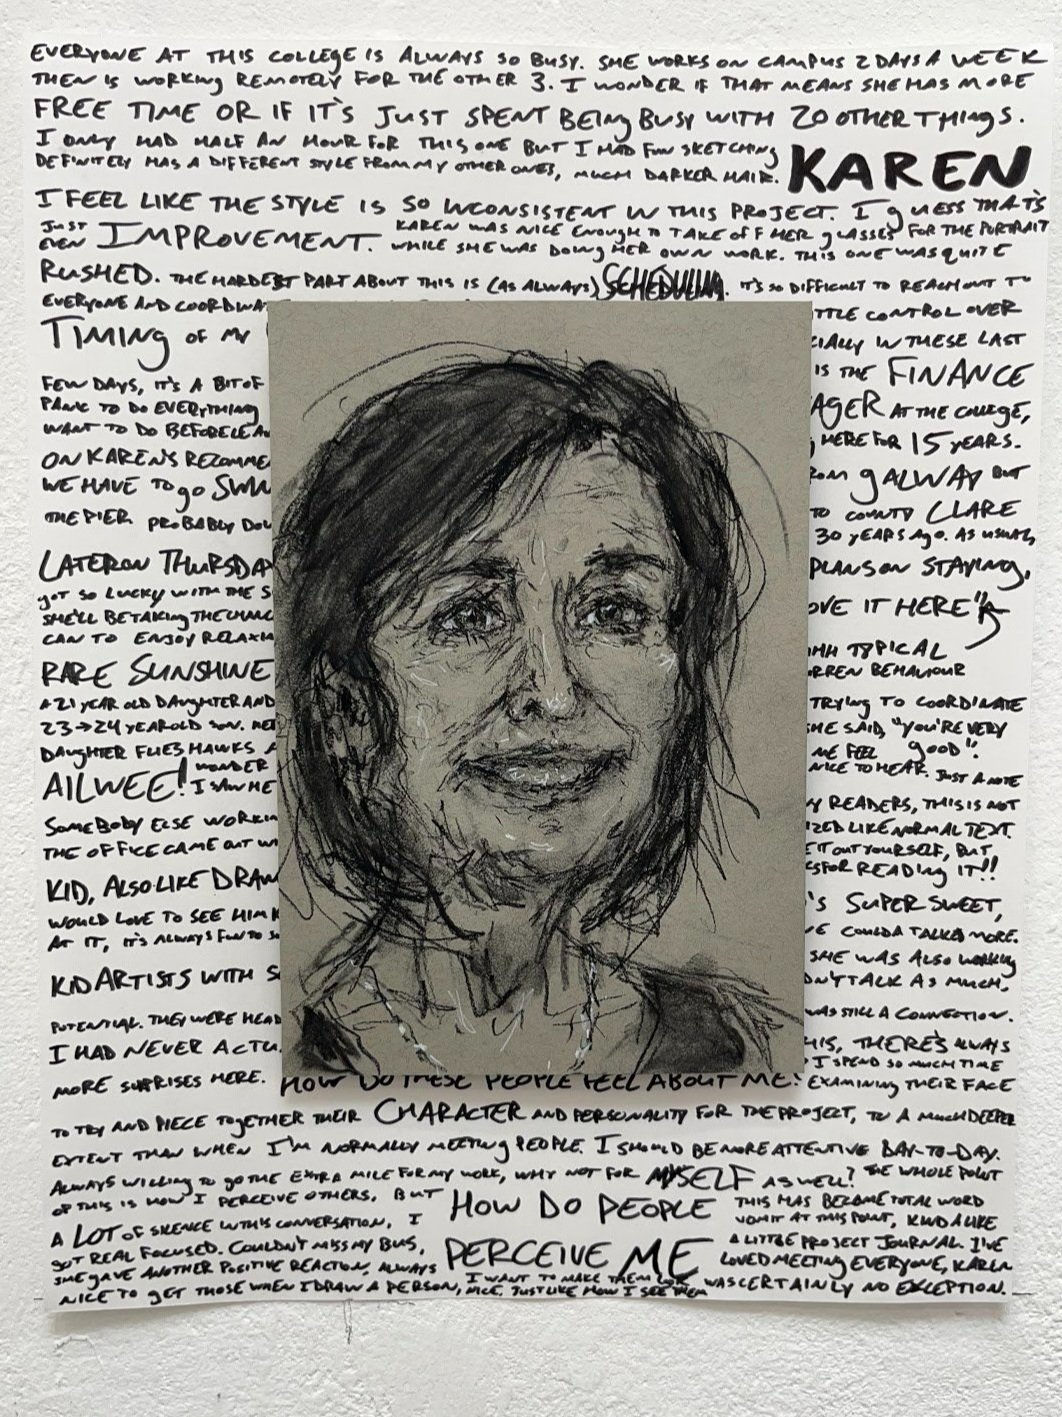 EVERYONE AT THIS COLLEGE IS ALWAYS SO BUSY. SHE WORKS ON CAMPUS 2 DAYS A WEEK
THEN IS WORKING REMOTELY FOR THE OTHER 3. I WONDER IF THAT MEANS SHE HAS MORE
FREE TIME OR IF IT'S JUST SPENT BEING BUSY WITH 20 OTHER THINGS.
I ONLY HAD HALF AN HOUR FOR THIS ONE BUT I HAD FUN SKETCHING
DEFINITELY HAS A DIFFERENT STYLE FROM MY OTHER ONES, MUCH DARKER HAIR. KAREN
I FEEL LIKE THE STYLE IS SO INCONSISTENT IN THIS PROJECT. I GUESS THAT'S
JUST EVEN IMPROVEMENT. KAREN WAS NICE ENOUGH TO TAKE OFF HER GLASSES FOR THE PORTRAIT
WHILE SHE WAS DOING HER OWN WORK. THIS ONE WAS QUITE
RUSHED. THE HARDEST PART ABOUT THIS IS (AS ALWAYS) SCHEDULING. IT'S SO DIFFICULT TO REACH OUT TO
EVERYONE AND COORDINA TTLE CONTROL OVER
TIMING OF MY CIALLY IN THESE LAST
FEW DAYS, IT'S A BIT OF IS THE FINANCE
PANIC TO DO EVERYTHING AGER AT THE COLLEGE,
WANT TO DO BEFORE LEA HERE FOR 15 YEARS.
ON KAREN'S RECOMME ROM GALWAY BUT
WE HAVE TO GO SWIM TO COUNTY CLARE
THE PIER. PROBABLY DOW 30 YEARS AGO. AS USUAL,
LATER ON THURSDAY PLANS ON STAYING,
GOT SO LUCKY WITH THE S OVE IT HERE"
SHE'LL BE TAKING THE CHANC
CAN TO ENJOY RELAXIN HH TYPICAL
RARE SUNSHINE RREN BEHAVIOUR
A 21 YEAR OLD DAUGHTER AND TRYING TO COORDINATE
23→24 YEAR OLD SON. HER HE SAID, "YOU'RE VERY
DAUGHTER FLIES HAWKS A ME FEEL GOOD".
AILWEE! I WONDER NICE TO HEAR. JUST A NOTE
I SAW HE
SOMEBODY ELSE WORKIN Y READERS, THIS IS NOT
THE OFFICE CAME OUT WI IZED LIKE NORMAL TEXT.
E IT OUT YOURSELF, BUT
KID, ALSO LIKE DRAW KS FOR READING IT!!
WOULD LOVE TO SEE HIM K 'S SUPER SWEET,
AT IT, IT'S ALWAYS FUN TO S VE COULDA TALKED MORE.
KID ARTISTS WITH S SHE WAS ALSO WORKING
DN'T TALK AS MUCH,
POTENTIAL. THEY WERE HEAD WAS STILL A CONNECTION.
I HAD NEVER ACTU HIS, THERE'S ALWAYS
I SPEND SO MUCH TIME
MORE SURPRISES HERE. HOW DO THESE PEOPLE FEEL ABOUT ME? EXAMINING THEIR FACE
TO TRY AND PIECE TOGETHER THEIR CHARACTER AND PERSONALITY FOR THE PROJECT, TO A MUCH DEEPER
EXTENT THAN WHEN I'M NORMALLY MEETING PEOPLE. I SHOULD BE MORE ATTENTIVE DAY-TO-DAY.
ALWAYS WILLING TO GO THE EXTRA MILE FOR MY WORK, WHY NOT FOR MYSELF AS WELL? THE WHOLE POINT
OF THIS IS HOW I PERCEIVE OTHERS, BUT HOW DO PEOPLE PERCEIVE ME
A LOT OF SILENCE IN THIS CONVERSATION, I
GOT REAL FOCUSED. COULDN'T MISS MY BUS,
SHE GAVE ANOTHER POSITIVE REACTION, ALWAYS
NICE TO GET THOSE WHEN I DRAW A PERSON, I WANT TO MAKE THEM LOOK
NICE. JUST LIKE HOW I SEE THEM
THIS HAS BECOME TOTAL WORD
VOMIT AT THIS POINT, KINDA LIKE
A LITTLE PROJECT JOURNAL. I'VE
LOVED MEETING EVERYONE, KAREN
WAS CERTAINLY NO EXCEPTION.